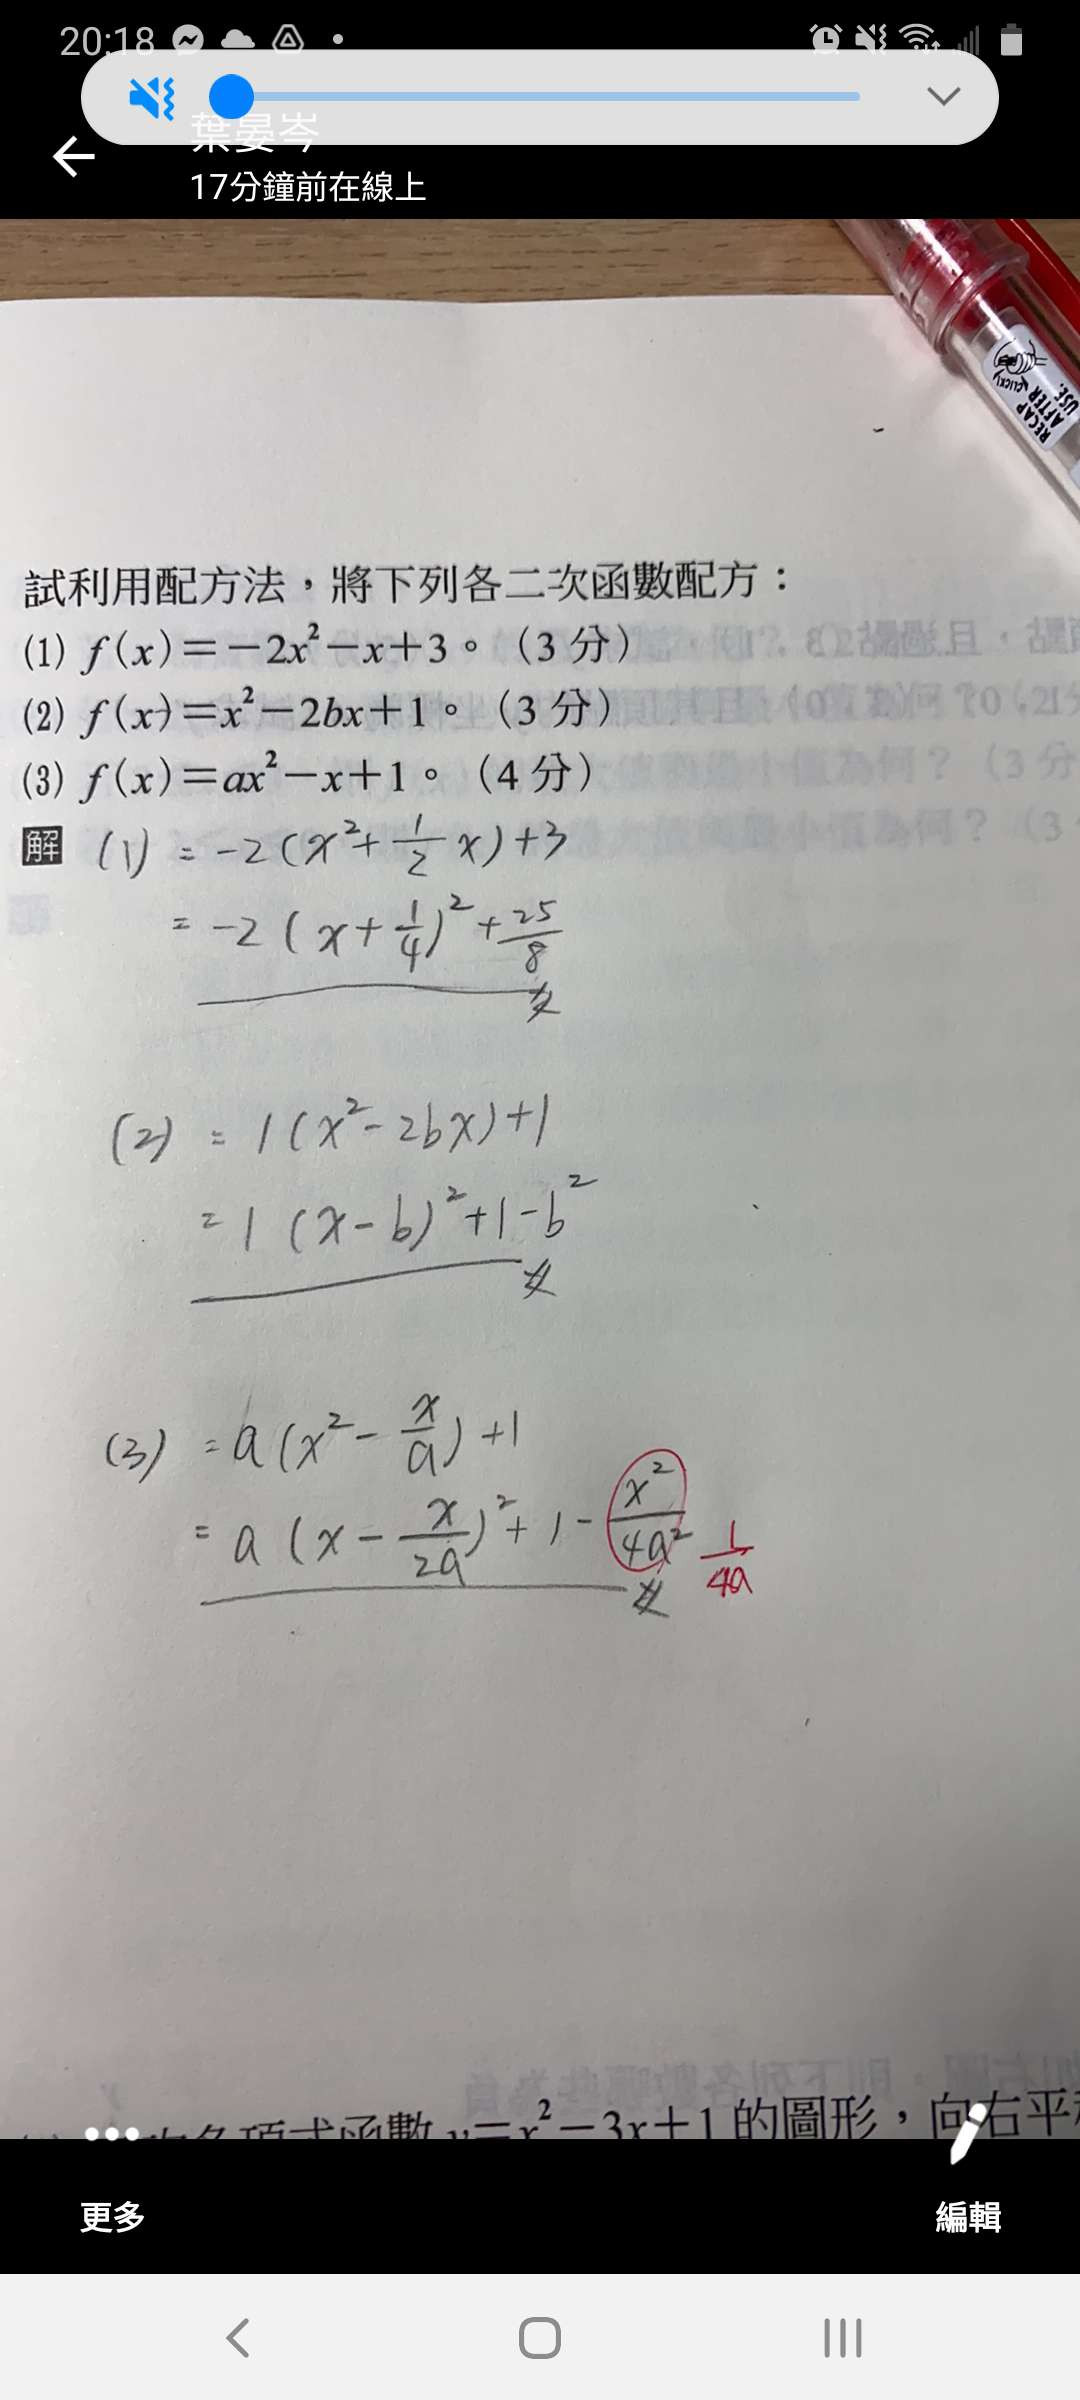 20:18
葉晏岑
17分鐘前在線上
RECAP
AFTER
USE.
CLICK!
試利用配方法，將下列各二次函數配方：
(1) f(x)=-2x²-x+3。（3分）
(2) f(x)=x²-2bx+1。（3分）
(3) f(x)=ax²-x+1。（4分）
解 (1) = -2(x²+1/2 x)+3
= -2(x+1/4)²+25/8
(2) = 1(x²-2bx)+1
= 1(x-b)²+1-b²
(3) = a(x²-x/a)+1
= a(x-x/2a)²+1-x²/4a² 1/4a
各項式函數 y=x²-3x+1 的圖形，向右平
更多
編輯